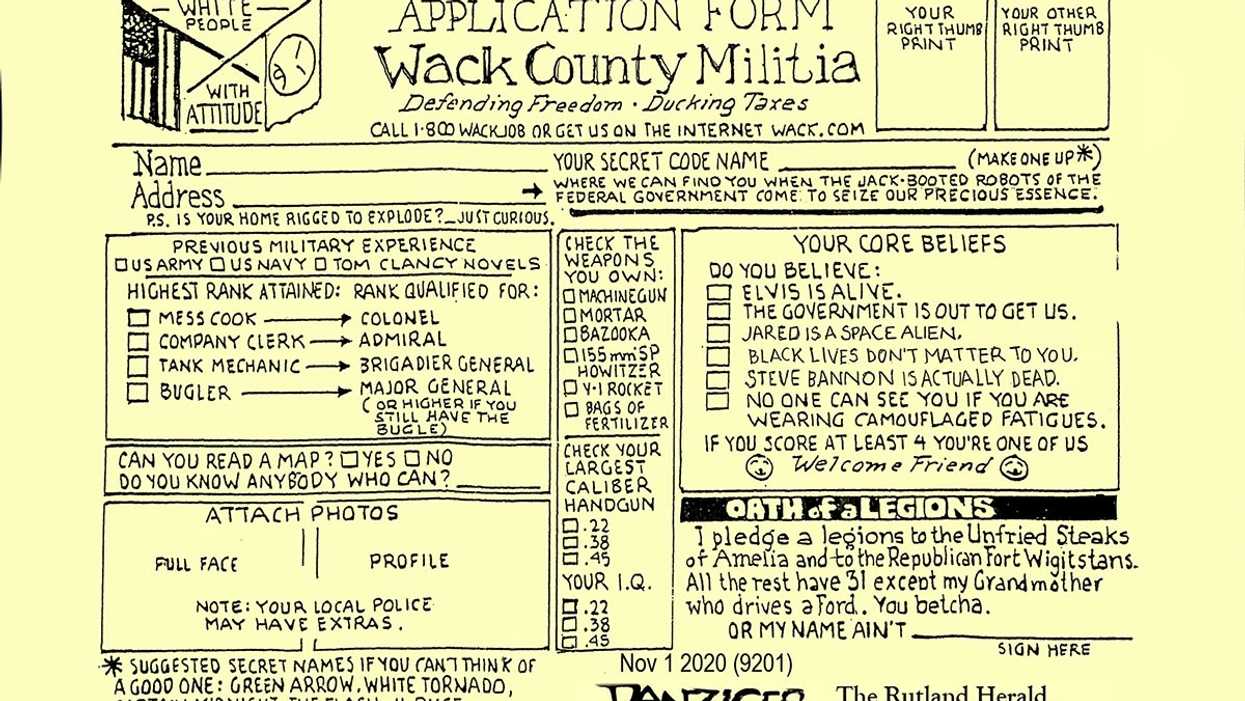 WHITE
PEOPLE
WITH
ATTITUDE
APPLICATION FORM
Wack County Militia
Defending Freedom • Ducking Taxes
CALL 1·800 WACKJOB OR GET US ON THE INTERNET WACK.COM
YOUR
RIGHT THUMB
PRINT
YOUR OTHER
RIGHT THUMB
PRINT
Name
YOUR SECRET CODE NAME (MAKE ONE UP*)
Address
WHERE WE CAN FIND YOU WHEN THE JACK-BOOTED ROBOTS OF THE
FEDERAL GOVERNMENT COME TO SEIZE OUR PRECIOUS ESSENCE.
P.S. IS YOUR HOME RIGGED TO EXPLODE?_JUST CURIOUS.
PREVIOUS MILITARY EXPERIENCE
US ARMY US NAVY TOM CLANCY NOVELS
HIGHEST RANK ATTAINED: RANK QUALIFIED FOR:
MESS COOK → COLONEL
COMPANY CLERK → ADMIRAL
TANK MECHANIC → BRIGADIER GENERAL
BUGLER → MAJOR GENERAL
(OR HIGHER IF YOU
STILL HAVE THE
BUGLE)
CAN YOU READ A MAP? YES NO
DO YOU KNOW ANYBODY WHO CAN?
ATTACH PHOTOS
FULL FACE
PROFILE
NOTE: YOUR LOCAL POLICE
MAY HAVE EXTRAS.
* SUGGESTED SECRET NAMES IF YOU CAN'T THINK OF
A GOOD ONE: GREEN ARROW, WHITE TORNADO,
CHECK THE
WEAPONS
YOU OWN:
MACHINEGUN
MORTAR
BAZOOKA
155 mm SP
HOWITZER
V-1 ROCKET
BAGS OF
FERTILIZER
CHECK YOUR
LARGEST
CALIBER
HANDGUN
.22
.38
.45
YOUR I.Q.
.22
.38
.45
YOUR CORE BELIEFS
DO YOU BELIEVE:
ELVIS IS ALIVE.
THE GOVERNMENT IS OUT TO GET US.
JARED IS A SPACE ALIEN.
BLACK LIVES DON'T MATTER TO YOU.
STEVE BANNON IS ACTUALLY DEAD.
NO ONE CAN SEE YOU IF YOU ARE
WEARING CAMOUFLAGED FATIGUES.
IF YOU SCORE AT LEAST 4 YOU'RE ONE OF US
Welcome Friend
OATH of a LEGIONS
I pledge a legions to the Unfried Steaks
of Amelia and to the Republican Fort Wigitstans.
All the rest have 31 except my Grandmother
who drives a Ford.. You betcha.
OR MY NAME AIN'T
SIGN HERE
Nov 1 2020 (9201)
DANZIGER
The Rutland Herald